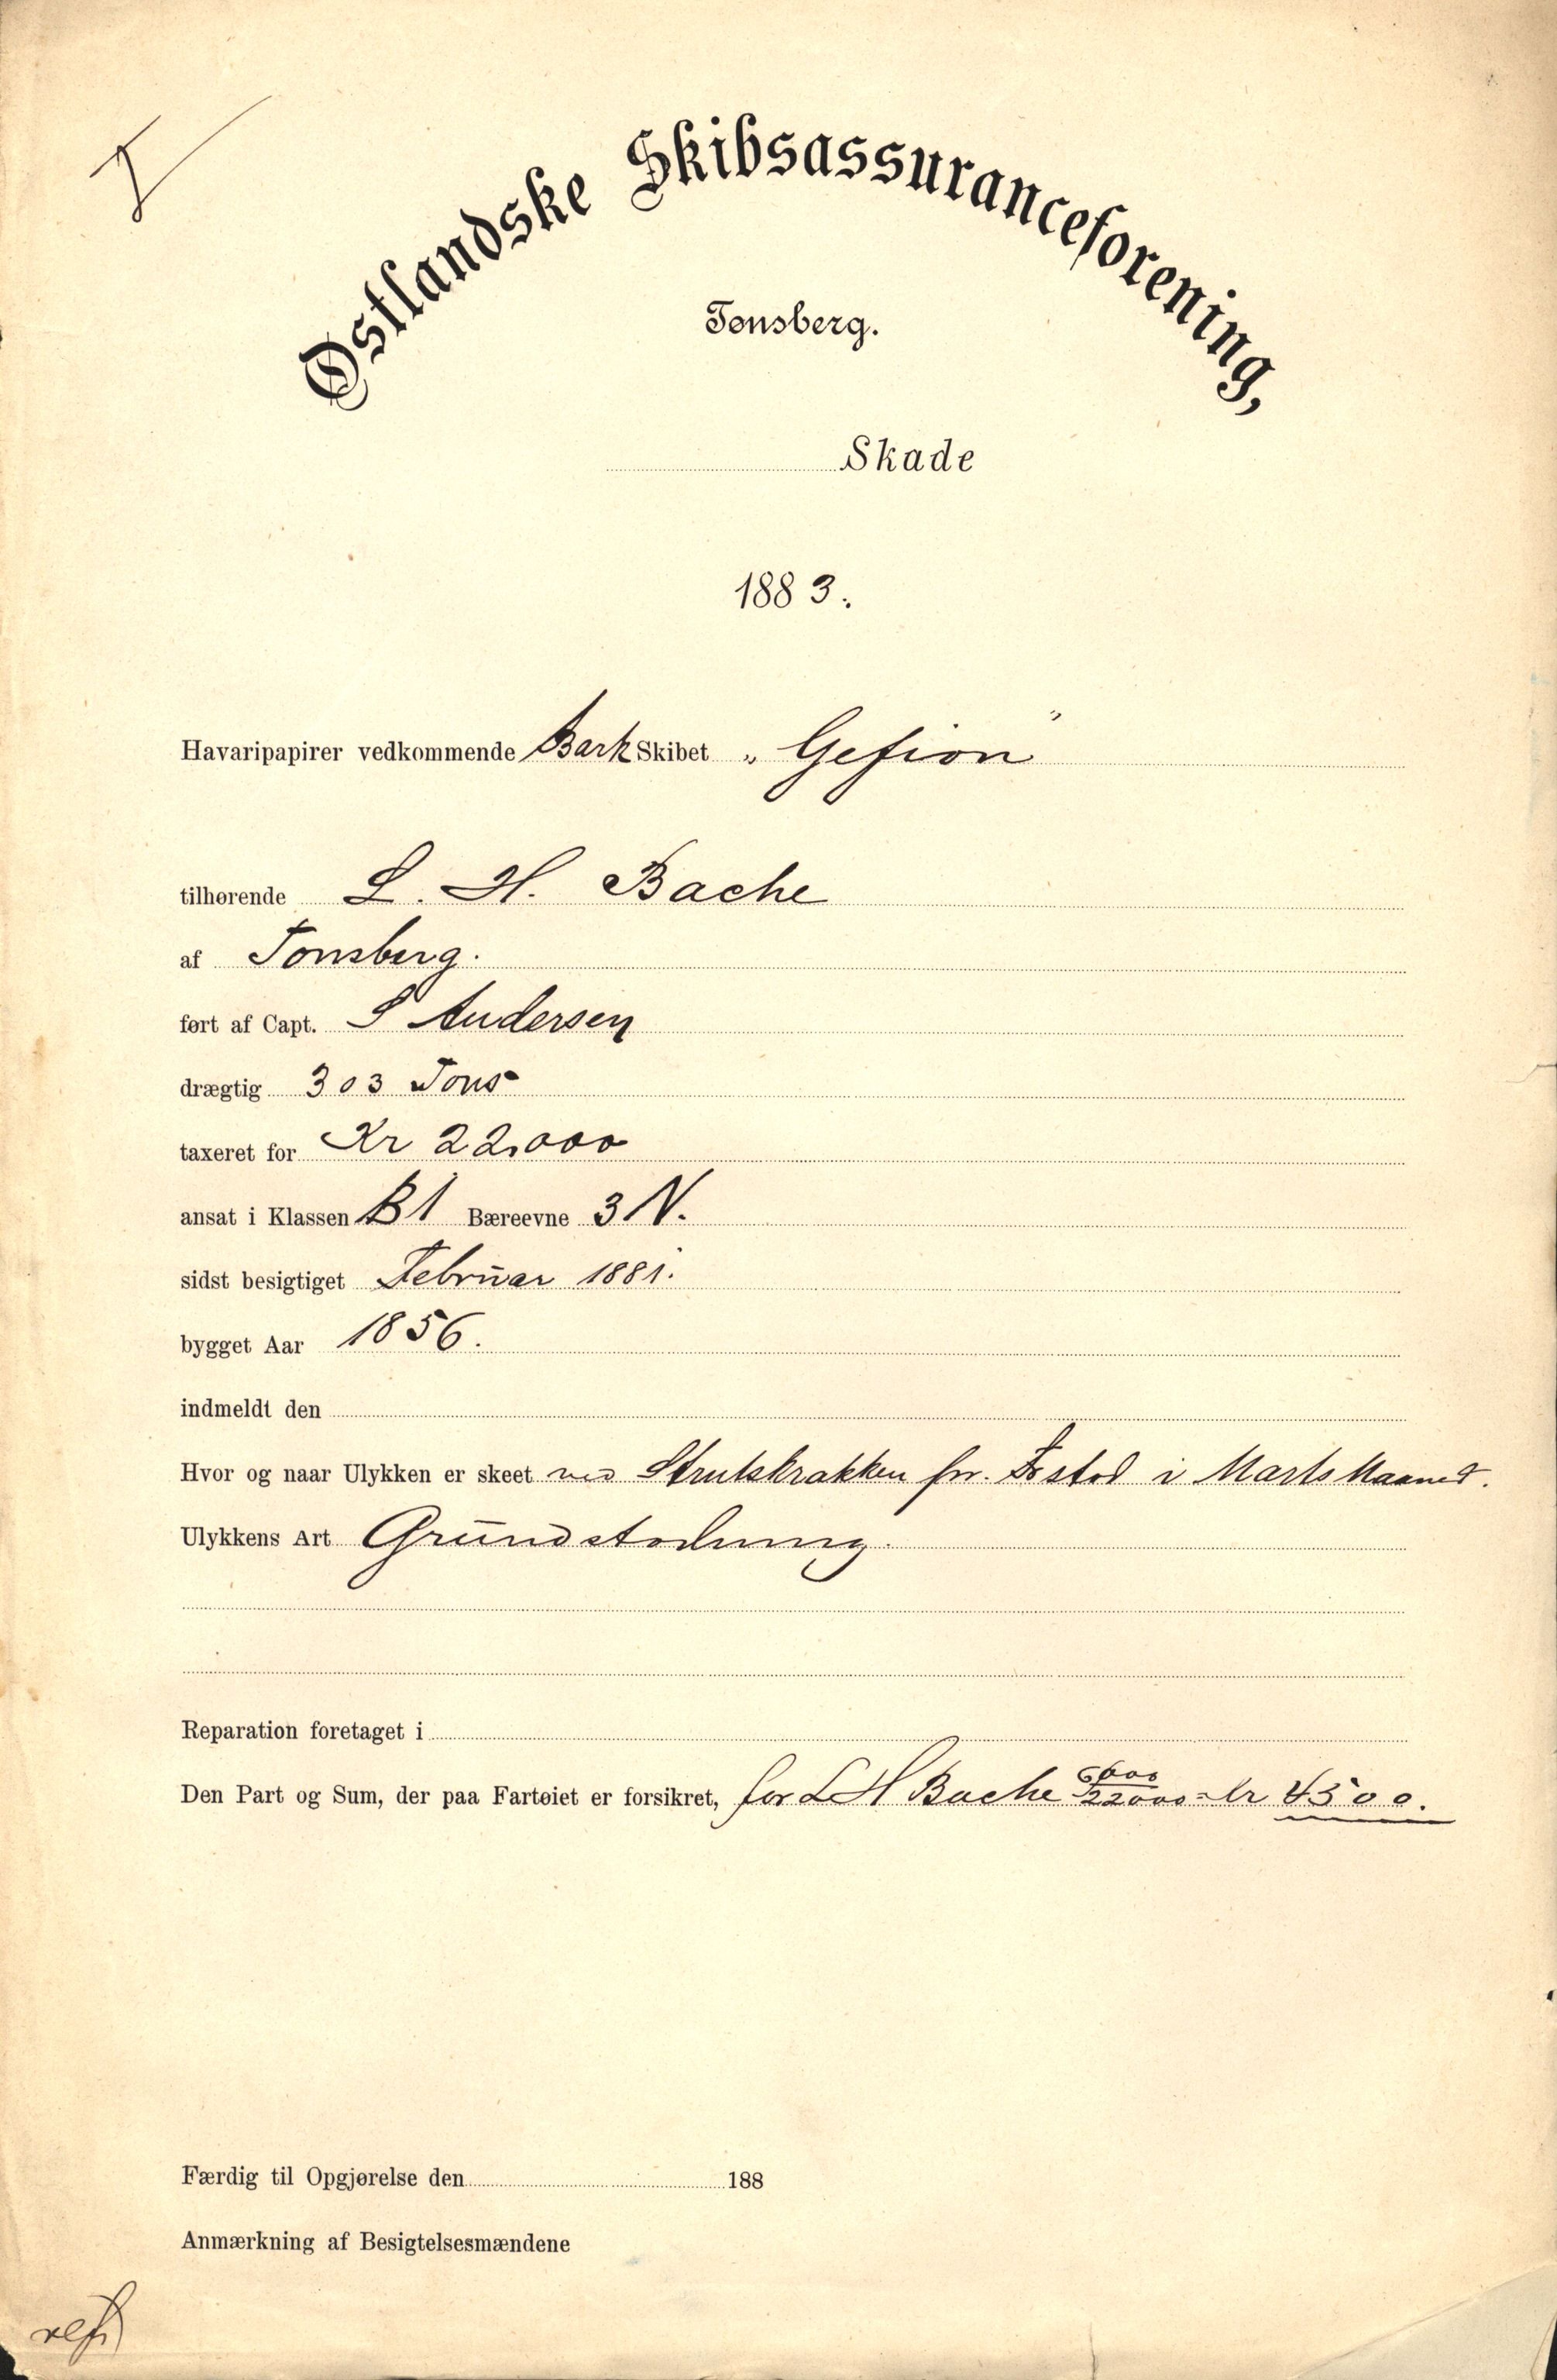 Østlandske Skibsassuranceforening,
Tønsberg.
Skade
1883.
Havaripapirer vedkommende Bark Skibet „Gefion"
tilhørende L. H. Bache
af Tønsberg.
ført af Capt. S Andersen
drægtig 303 Tons
taxeret for Kr 22,000
ansat i Klassen B1 Bæreevne 3 N.
sidst besigtiget Februar 1881.
bygget Aar 1856.
indmeldt den
Hvor og naar Ulykken er skeet ved i Marts Maaned.
Ulykkens Art Grundstødning.
Reparation foretaget i
Den Part og Sum, der paa Fartøiet er forsikret, for L H Bache 6000/22000 = kr 4500.
Færdig til Opgjørelse den 188
Anmærkning af Besigtelsesmændene